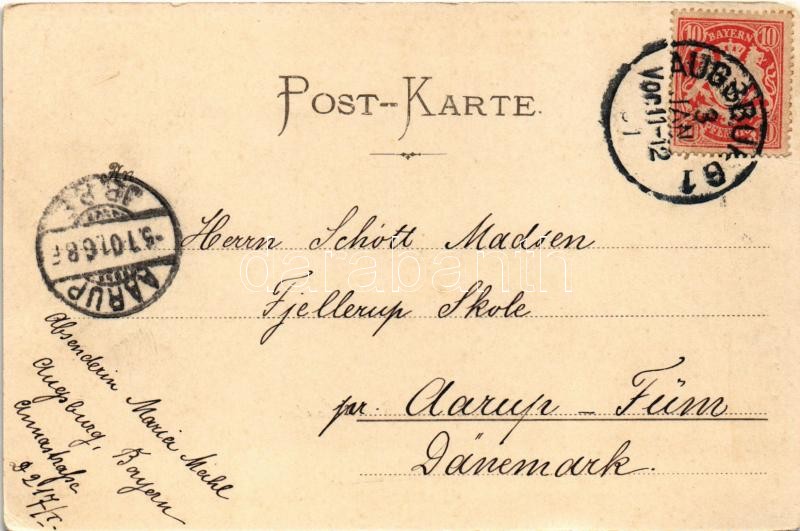 POST-KARTE.
An
10 BAYERN 10
PFENNIG
AUGSBURG 1
3
JAN
Vor. 11-12
01
AARUP
5.1.01. 6-8 F
Herrn Schött Madsen
Fjellerup Skole
pr. Aarup - Füm
Dänemark.
Absenderin Maria Mehl
Augsburg, Bayern
Annastraße
D 217/I.
darabanth